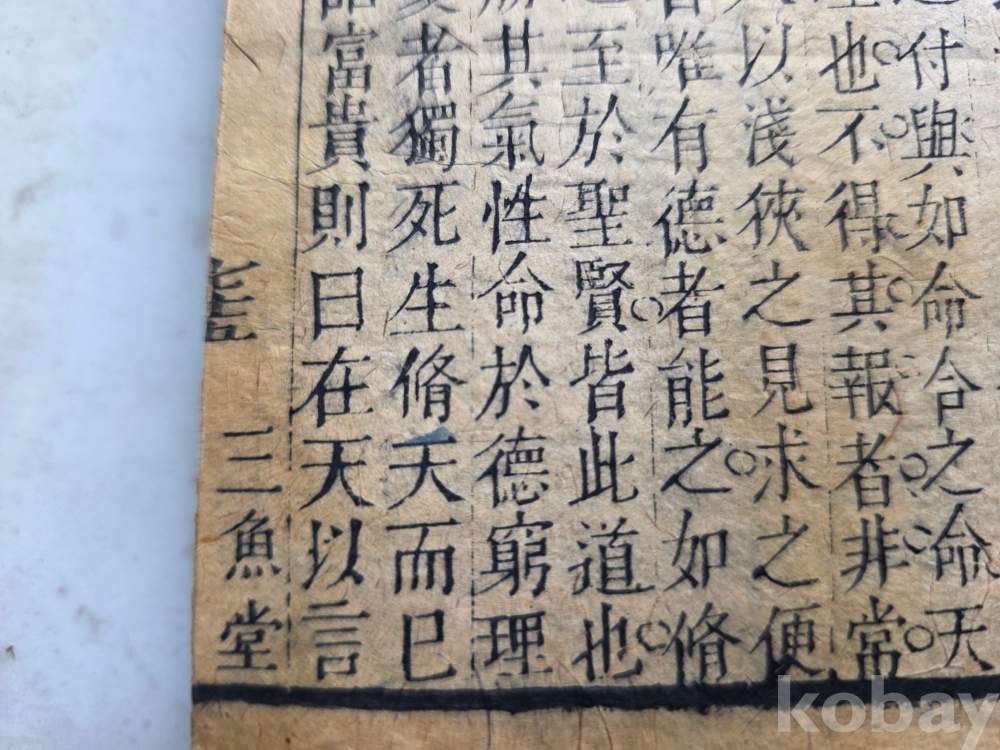 付與如命令之命天
也不得其報者非常
以淺狹之見求之便
唯有德者能之如脩
至於聖賢皆此道也
其氣性命於德窮理
者獨死生脩夭而已
富貴則曰在天以言
三魚堂
kobay